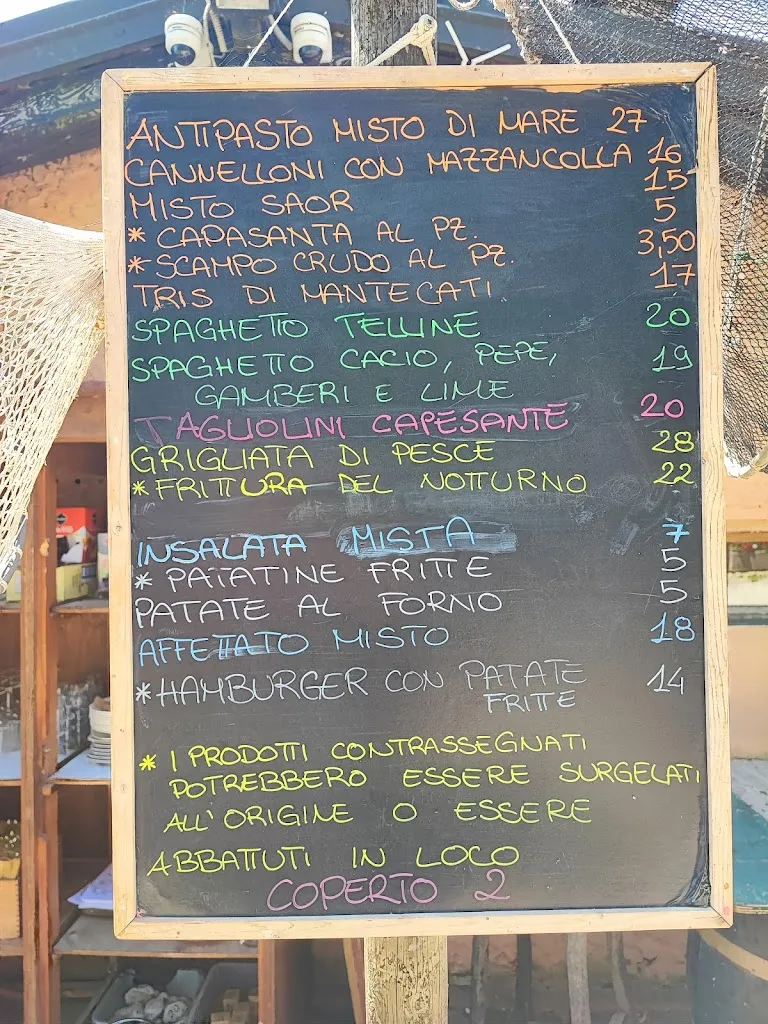 ANTIPASTO MISTO DI MARE 27
CANNELLONI CON MAZZANCOLLA 16
MISTO SAOR 15
* CAPASANTA AL PZ. 5
* SCAMPO CRUDO AL PZ. 3,50
TRIS DI MANTECATI 17
SPAGHETTO TELLINE 20
SPAGHETTO CACIO, PEPE, 19
GAMBERI E LIME
TAGLIOLINI CAPESANTE 20
GRIGLIATA DI PESCE 28
* FRITTURA DEL NOTTURNO 22
INSALATA MISTA 7
* PATATINE FRITTE 5
PATATE AL FORNO 5
AFFETTATO MISTO 18
* HAMBURGER CON PATATE 14
FRITTE
* I PRODOTTI CONTRASSEGNATI
POTREBBERO ESSERE SURGELATI
ALL'ORIGINE O ESSERE
ABBATTUTI IN LOCO
COPERTO 2